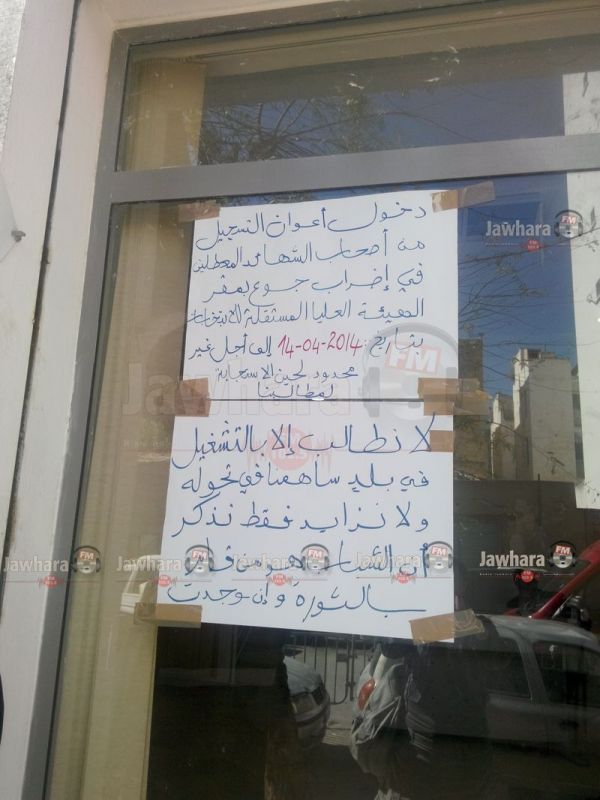 دخول أعوان التسجيل
من أصحاب الشهائد المعطلين
في إضراب جوع بمقر
الهيئة العليا المستقلة للانتخابات
بتاريخ: 14-04-2014 إلى أجل غير
محدود لحين الاستجابة
لمطالبنا
لا نطالب إلا بالتشغيل
في بلدٍ ساهمنا في تحوله
ولا نزايد فقط نذكر
أن الشباب هو من قام
بالثورة وإن وجدت
Jawhara FM
Jawhara FM
Jawhara FM
Jawhara FM
Jawhara FM